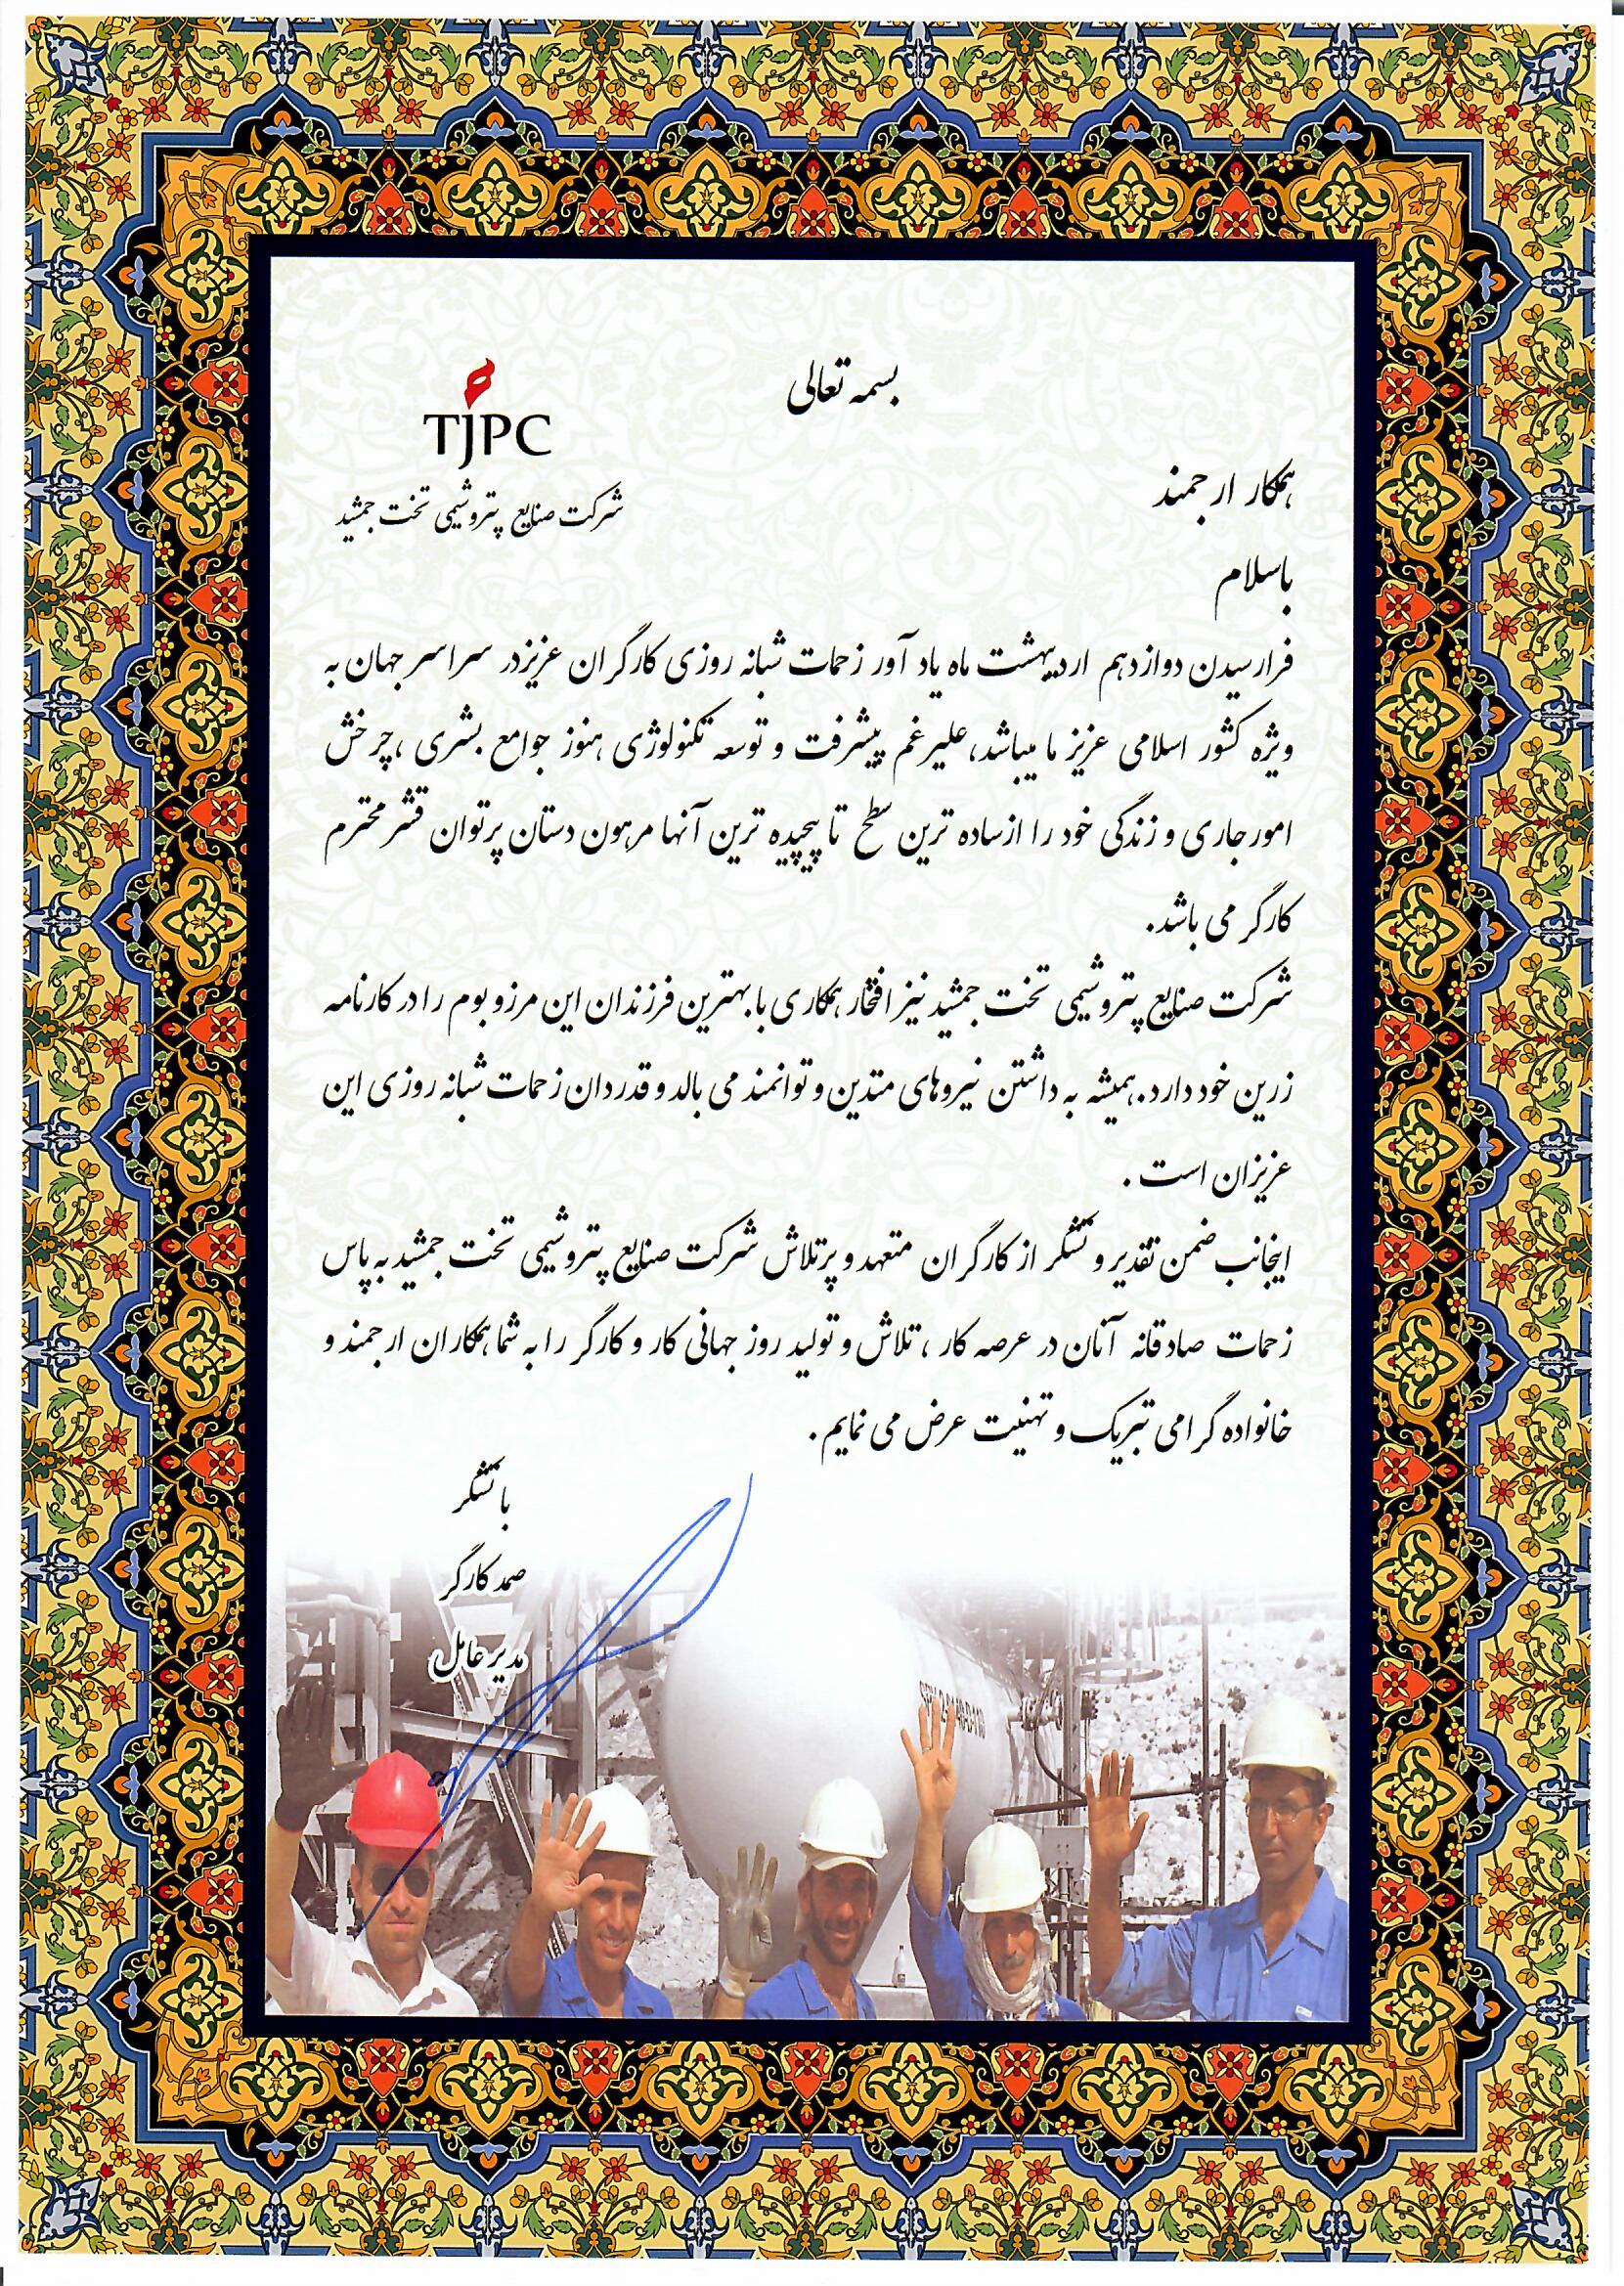 بسمه تعالی
TJPC
شرکت صنایع پتروشیمی تخت جمشید
همکار ارجمند
باسلام
فرارسیدن دوازدهم اردیبهشت ماه یاد آور زحمات شبانه روزی کارگران عزیزدر سراسر جهان به
ویژه کشور اسلامی عزیز ما میباشد، علیرغم پیشرفت و توسعه تکنولوژی هنوز جوامع بشری ،چرخش
امور جاری و زندگی خود را از ساده ترین سطح تا پیچیده ترین آنها مرهون دستان پرتوان قشر محترم
کارگر می باشد.
شرکت صنایع پتروشیمی تخت جمشید نیز افتخار همکاری با بهترین فرزندان این مرز و بوم را در کارنامه
زرین خود دارد.همیشه به داشتن نیروهای متدین و توانمند می بالد و قدردان زحمات شبانه روزی این
عزیزان است .
اینجانب ضمن تقدیر و تشکر از کارگران متعهد و پرتلاش شرکت صنایع پتروشیمی تخت جمشید به پاس
زحمات صادقانه آنان در عرصه کار ، تلاش و تولید روز جهانی کار و کارگر را به شما همکاران ارجمند و
خانواده گرامی تبریک و تهنیت عرض می نمایم.
با تشکر
صمد کارگر
مدیرعامل